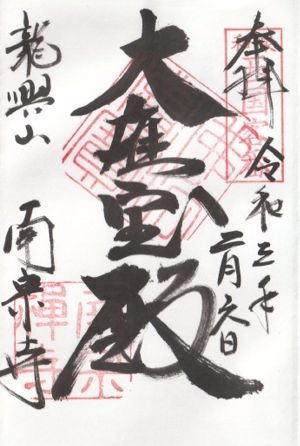 奉拝 令和三年二月六日
大雄宝殿
龍興山 南宗寺
南宗
禪寺